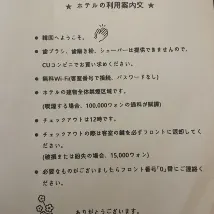 ★ ホテルの利用案内文 ★
韓国へようこそ。
歯ブラシ、歯磨き粉、シェーバーは提供できませんので、
CUコンビニでお買い求めください。
無料Wi-Fi(客室番号で接続、パスワードなし)
ホテルの建物全体禁煙区域です。
(喫煙する場合、100,000ウォンの過料が賦課)
チェックアウトは12時です。
チェックアウトの際は客室の鍵を必ずフロントに返却してく
ださい。
(破損または紛失の場合、15,000ウォン)
必要なものがございましたらフロント番号「0」番にご連絡く
ださい。
ありがとうございます。